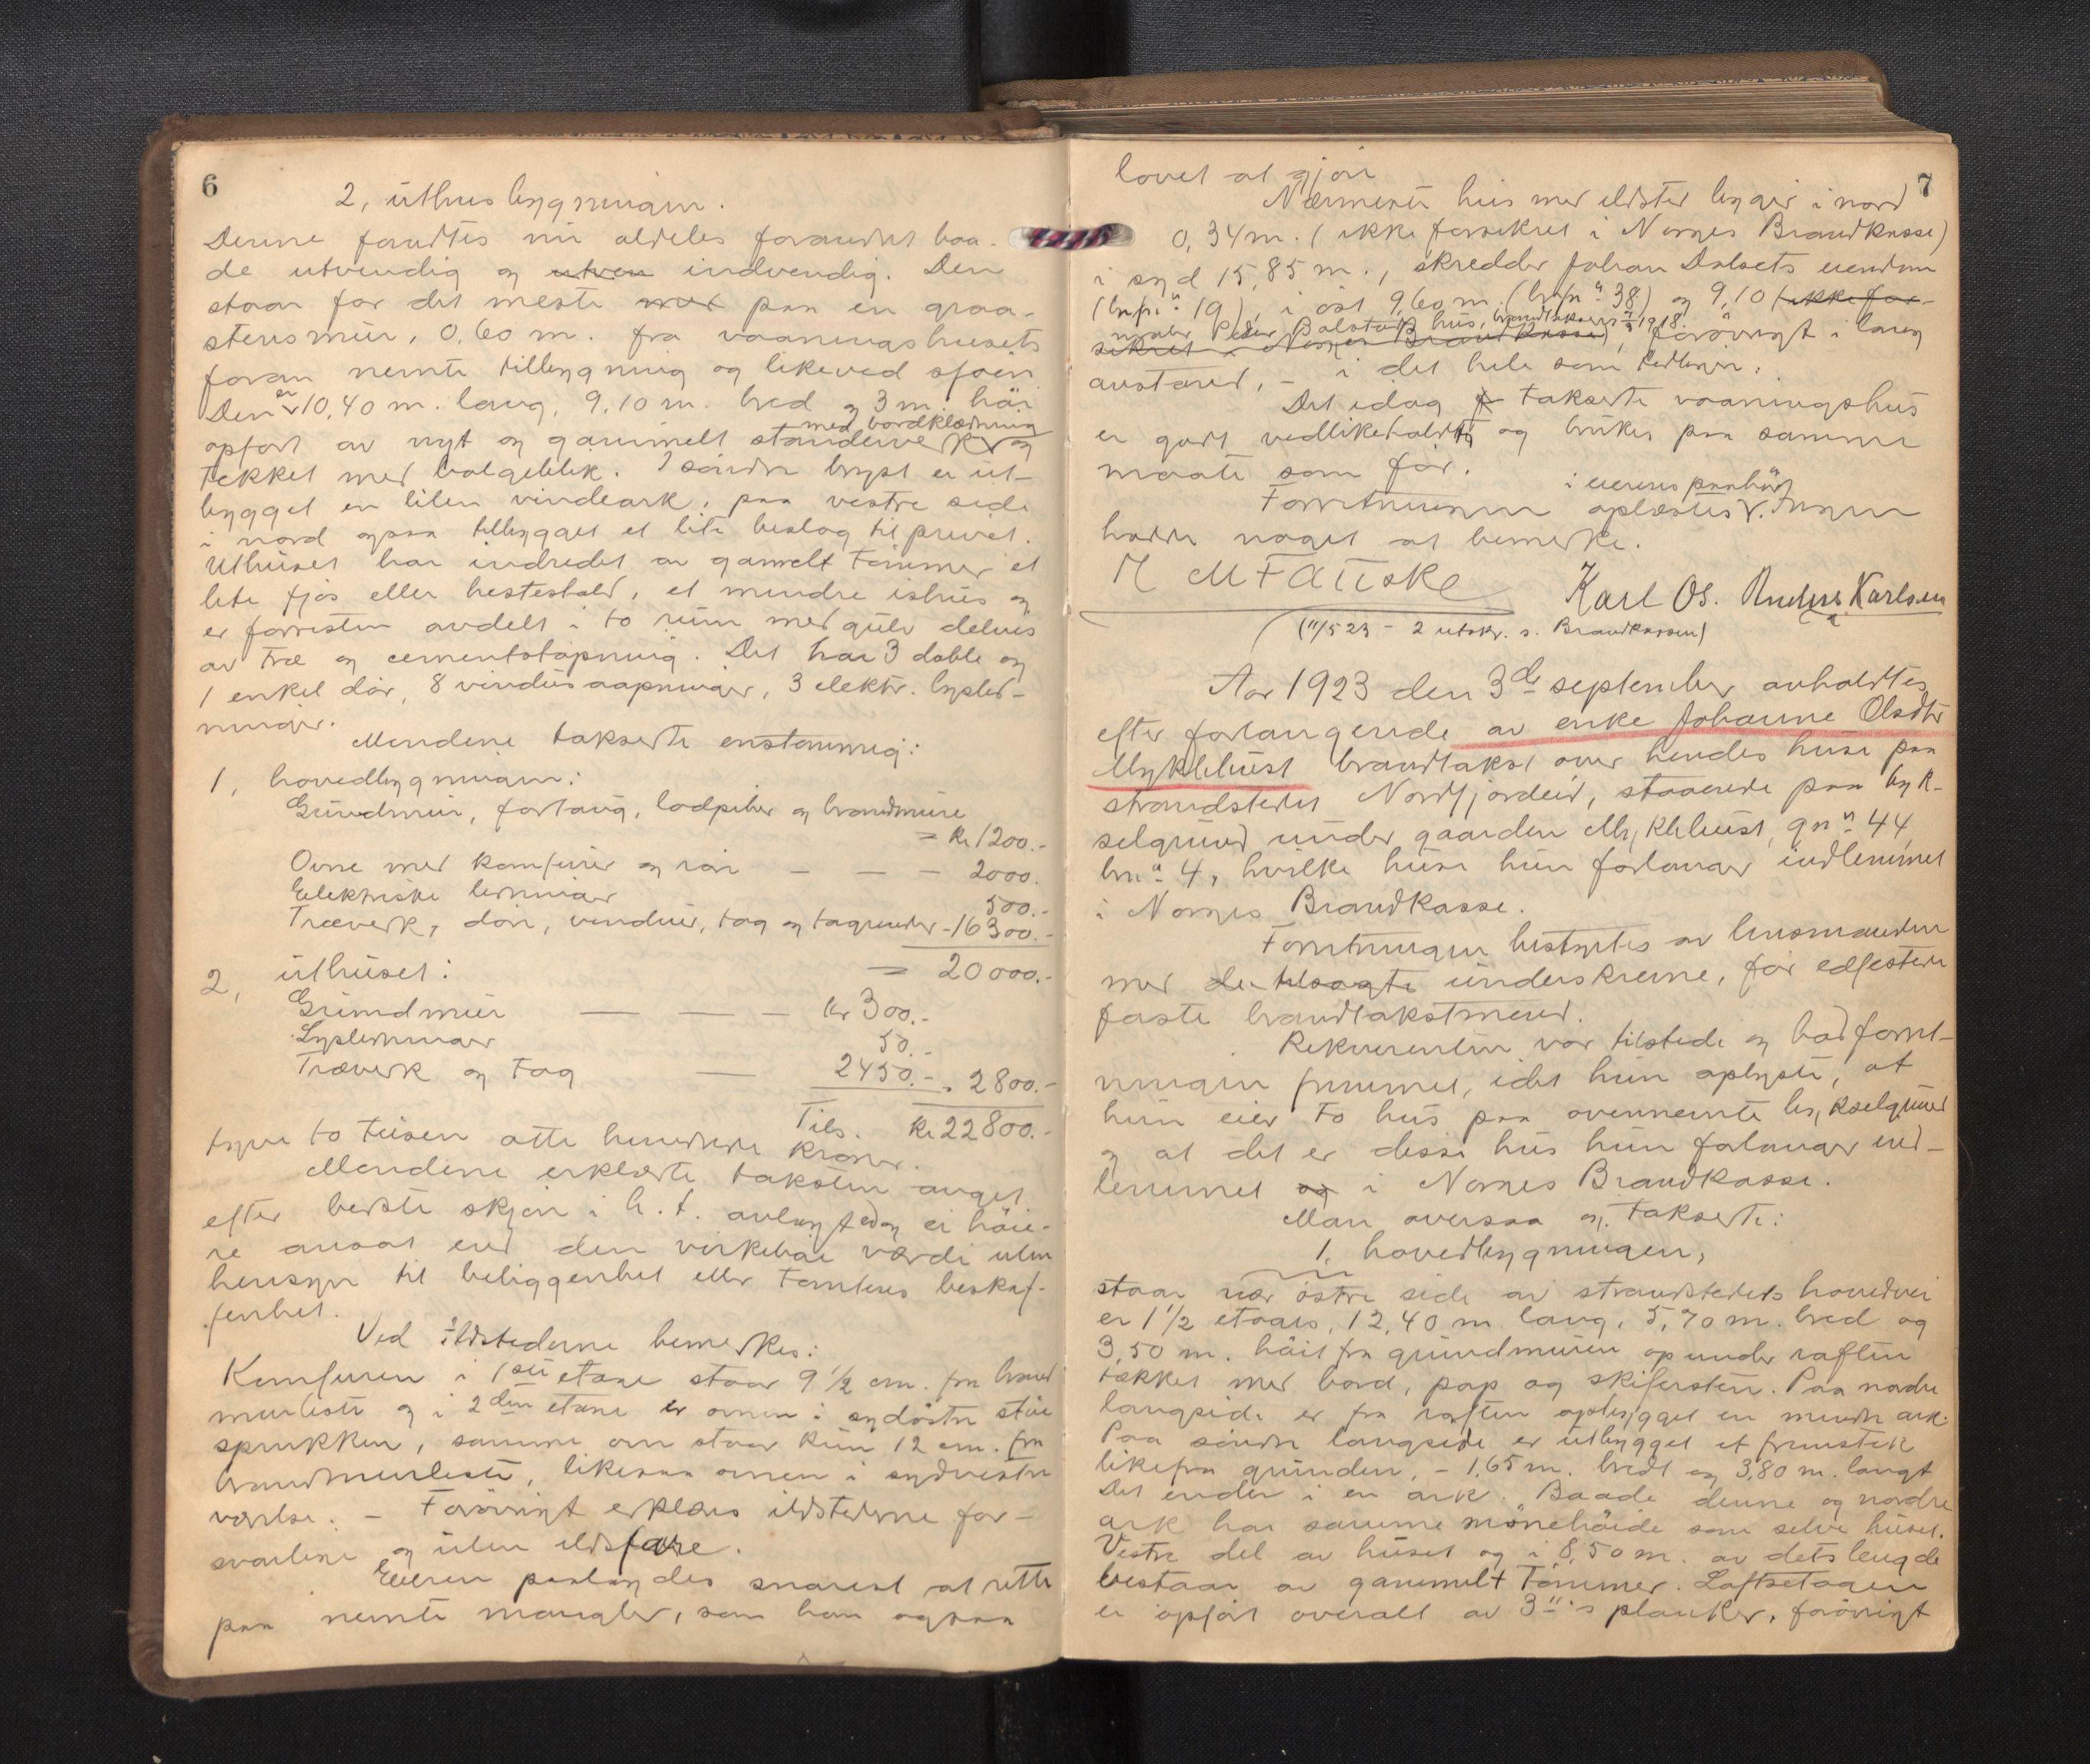 6
2, uthusbygningen.
Denne fandtes nu aldeles forandret baa-
de utvendig og utven indvendig. Den
staar for det meste med paa en graa-
stensmur, 0,60 m. fra vaaningshusets
foran nemte tilbygning og likeved sjøen
Den er 10,40 m. lang, 9,10 m. bred og 3 m. høi
med bordklædning
opført av nyt og gammelt standerverk og
tekket med bølgeblik. I søndre bryst er ut-
bygget en liten vindeark, paa vestre side
i nord ogsaa tilbygget et lite beslag til privet.
Uthuset har indredet av gamelt tømmer et
lite fjøs eller hestestald, et mindre ishus og
er forresten avdelt i to rum med gulv delvis
av træ og cementstøpning. Det har 3 doble og
1 enkel dør, 8 vindusaapninger, 3 elektr. lysled-
ninger.
Mendene takserte enstemmig:
1, hovedbygningen:
Grundmur, forlaug, lodpiber og brandmure
= Kr 1200.-
Ovne med komfurer og rør — — — 2000.
Elektriske ledninger 500.-
Træverk, dører, vinduer, tag og tagrender - 16300.-
= 20000.-
2, uthuset:
Grundmur — — — Kr 300.-
Lysledninger 50.-
Træverk og tag — 2450.- . 2800.-
Tils. Kr 22800.-
tyve to tusen otte hundrede kroner.
Mendene erklærte taksten avget
efter bedste skjøn i h. t. avlagt ed og ei høie-
re ansat end den virkelige værdi uten
hensyn til beliggenhet eller tomtens beskaf-
fenhet.
Ved ildstederne bemerkes:
Komfuren i 1ste etage staar 9 1/2 cm. fra brand
murliste og i 2den etage er ovnen i sydøstre stue
sprukken, samme ovn staar kun 12 cm. fra
brandmurliste, likesaa ovnen i sydvestre
værelse. – Forøvrigt erklæres ildstederne for-
svarlige og uten ildsfare.
Eieren paalagdes snarest at rette
paa nemte mangler, som han ogsaa
7
lovet at gjøre
Nærmeste hus med ildsted ligger i nord
0,34 m. (ikke forsikret i Norges Brandkasse)
i syd 15,85 m., skredder Johan Dalsets eiendom
(br.pr. nr 19), i øst 9,60 m. (br.pr. nr 38) og 9,10 (ikke for-
Peder hus, brandtakseret 1918.
sikret i Norges Brandkasse), forøvrigt i lang
avstand, – i det hele som tidligere.
Det idag takserte vaaningshus
er godt vedlikeholdt og brukes paa samme
maate som før.
i eierens paahør
Forretningen oplæstes. Ingen
hadde noget at bemerke.
M Fauske
Karl Os. Anders Karlsen
(11/5 23 – 2 utskr. s. Brandkassen)
Aar 1923 den 3de september avholdtes
efter forlangende av enke Johanne Olsdtr
Myklebust brandtakst over hendes huse paa
strandstedet Nordfjordeid, staaende paa byk-
selgrund under gaarden Myklebust, gnr 44,
bnr 4, hvilke huse hun forlanger indlemmet
i Norges Brandkasse.
Forretningen bestyrtes av lensmanden
med de tilsagte underskrevne, før edfestede
faste brandtakstmend.
Rekvirenten var tilstede og bad forret-
ningen fremmet, idet hun oplyste, at
hun eier to hus paa ovennemte bykselgrund
og at det er disse hus hun forlanger ind-
lemmet og i Norges Brandkasse.
Man oversaa og takserte:
1, hovedbygningen,
staar nær østre side av strandstedets hovedvei
er 1 1/2 etages, 12,40 m lang, 5,70 m. bred og
3,50 m. høit fra grundmuren op under raften
tækket med bord, pap og skifersten. Paa nordre
langside er fra raften opbygget en mindre ark.
Paa søndre langside er utbygget et fremstik
likefra grunden, – 1,65 m. bredt og 3,80 m. langt
Det ender i en ark. Baade denne og nordre
ark har samme mønehøide som selve huset.
Vestre del av huset og i 8,50 m. av dets lengde
bestaar av gammelt tømmer. Loftsetagen
er opført overalt av 3"'s planker, forøvrigt